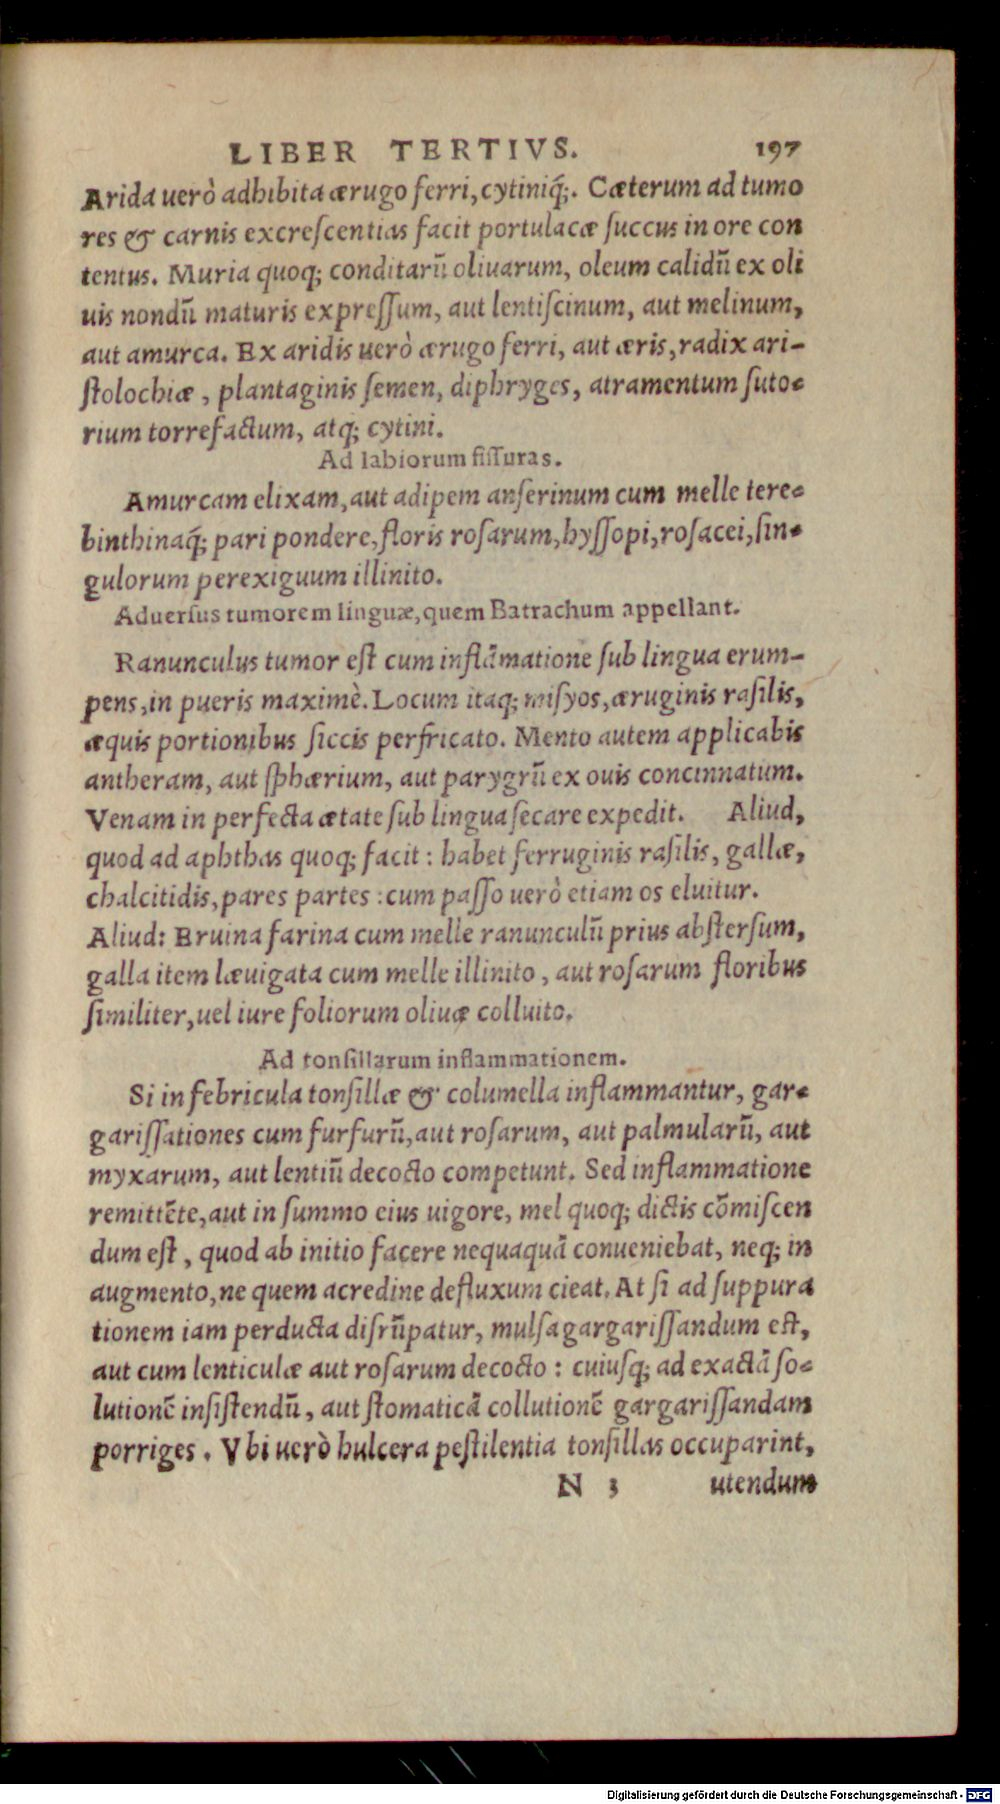 LIBER TERTIVS. 197
Arida uerò adhibita ærugo ferri, cytiniq́;. Cæterum ad tumo
res & carnis excrescentias facit portulacæ succus in ore con
tentus. Muria quoq; conditarũ oliuarum, oleum calidũ ex oli
uis nondũ maturis expressum, aut lentiscinum, aut melinum,
aut amurca. Ex aridis uerò ærugo ferri, aut æris, radix ari-
stolochiæ, plantaginis semen, diphryges, atramentum suto-
rium torrefactum, atq; cytini.
Ad labiorum fissuras.
Amurcam elixam, aut adipem anserinum cum melle tere-
binthinaq́; pari pondere, floris rosarum, hyssopi, rosacei, sin-
gulorum perexiguum illinito.
Aduersus tumorem linguæ, quem Batrachum appellant.
Ranunculus tumor est cum inflãmatione sub lingua erum-
pens, in pueris maximè. Locum itaq; misyos, æruginis rasilis,
æquis portionibus siccis perfricato. Mento autem applicabis
antheram, aut sphærium, aut parygrũ ex ouis concinnatum.
Venam in perfecta ætate sub lingua secare expedit. Aliud,
quod ad aphthas quoq; facit : habet ferruginis rasilis, gallæ,
chalcitidis, pares partes : cum passo uerò etiam os eluitur.
Aliud: Eruina farina cum melle ranunculũ prius abstersum,
galla item læuigata cum melle illinito, aut rosarum floribus
similiter, uel iure foliorum oliuæ colluito.
Ad tonsillarum inflammationem.
Si in febricula tonsillæ & columella inflammantur, gar-
garissationes cum furfurũ, aut rosarum, aut palmularũ, aut
myxarum, aut lentiũ decocto competunt. Sed inflammatione
remittẽte, aut in summo eius uigore, mel quoq; dictis cõmiscen
dum est, quod ab initio facere nequaquã conueniebat, neq; in
augmento, ne quem acredine defluxum cieat. At si ad suppura
tionem iam perducta disrũpatur, mulsa gargarissandum est,
aut cum lenticulæ aut rosarum decocto : cuiusq; ad exactã so-
lutionẽ insistendũ, aut stomaticã collutionẽ gargarissandam
porriges. Vbi uerò hulcera pestilentia tonsillas occuparint,
N 3 utendum
Digitalisierung gefördert durch die Deutsche Forschungsgemeinschaft - DFG